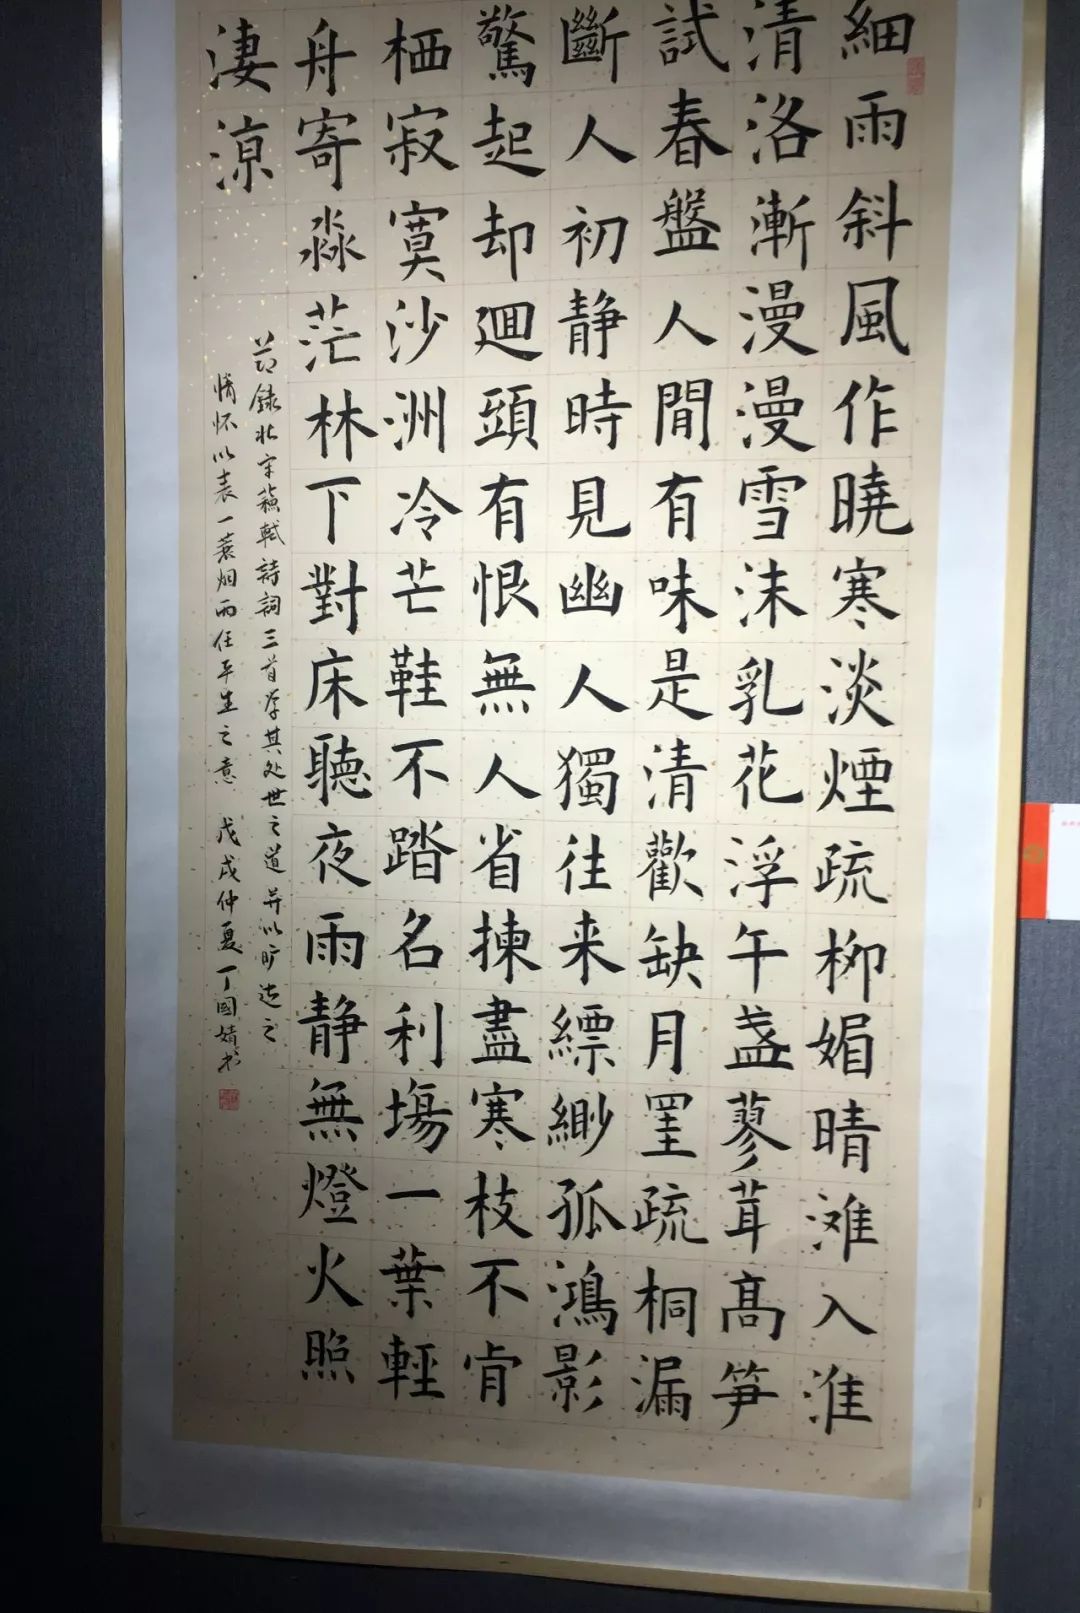 細雨斜風作曉寒淡煙疏柳媚晴滩入淮
清洛漸漫漫雪沫乳花浮午盏蓼茸髙笋
試春盤人間有味是清歡缺月罣疏桐漏
斷人初静時見幽人獨往来縹緲孤鴻影
驚起却迴頭有恨無人省揀盡寒枝不肯
栖寂寞沙洲冷芒鞋不踏名利塲一葉輕
舟寄淼茫林下對床聽夜雨静無燈火照
淒涼
节錄北宋蘇軾詩詞三首学其处世之道并以旷达之
情怀以表一蓑烟雨任平生之意 戊戌仲夏丁國婧书